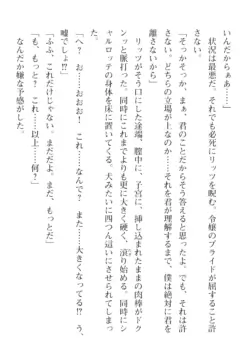 いんだからぁぁ……」
状況は最悪だ。それでも必死にリッツを睨む。令嬢のプライドが屈すること許
さない。
「そっかそっか、まぁ、君のことだからそう答えると思ったよ。でも、それは許
さない。どちらの立場が上なのか……それを君が理解するまで、僕は絶対に君を
離さないから」
リッツがそう口にした途端、膣中に、子宮に、挿し込まれたままの肉棒がドク
ンッと脈打った。同時にこれまでよりも更に大きく硬く、滾り始める。同時にシ
ャルロッテの身体を床に置いてくる。犬みたいに四つん這いにさせられてしまっ
た。
「へ？　お……おおお！　これ……なんで？　また……大きくなってる!?　う、
嘘でしょ!?」
「ふふ、これだけじゃない。まだだよ。まだ、もっとだ」
「も、もっと？　これ……以上……何？」
なんだか嫌な予感がした。